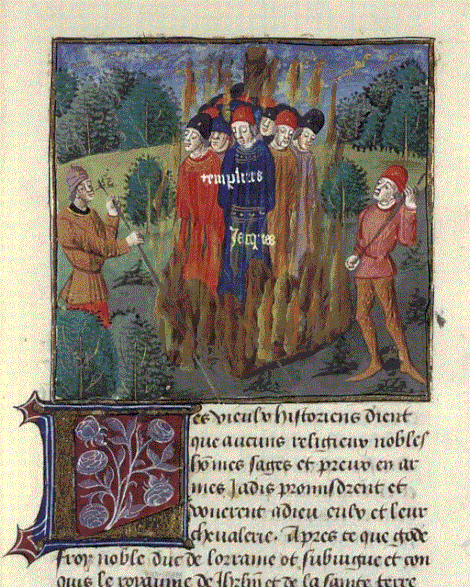 templiers
Jacques
Les vieulx historiens dient
que aucuns religieux nobles
hommes sages et preux en ar
mes jadis promisdrent et
vouerent a dieu eulx et leur
chevalerie. Apres ce que gode
froy noble duc de lorraine ot subiugue et con
quis le royaume de Jhrlm et de la sainte terre